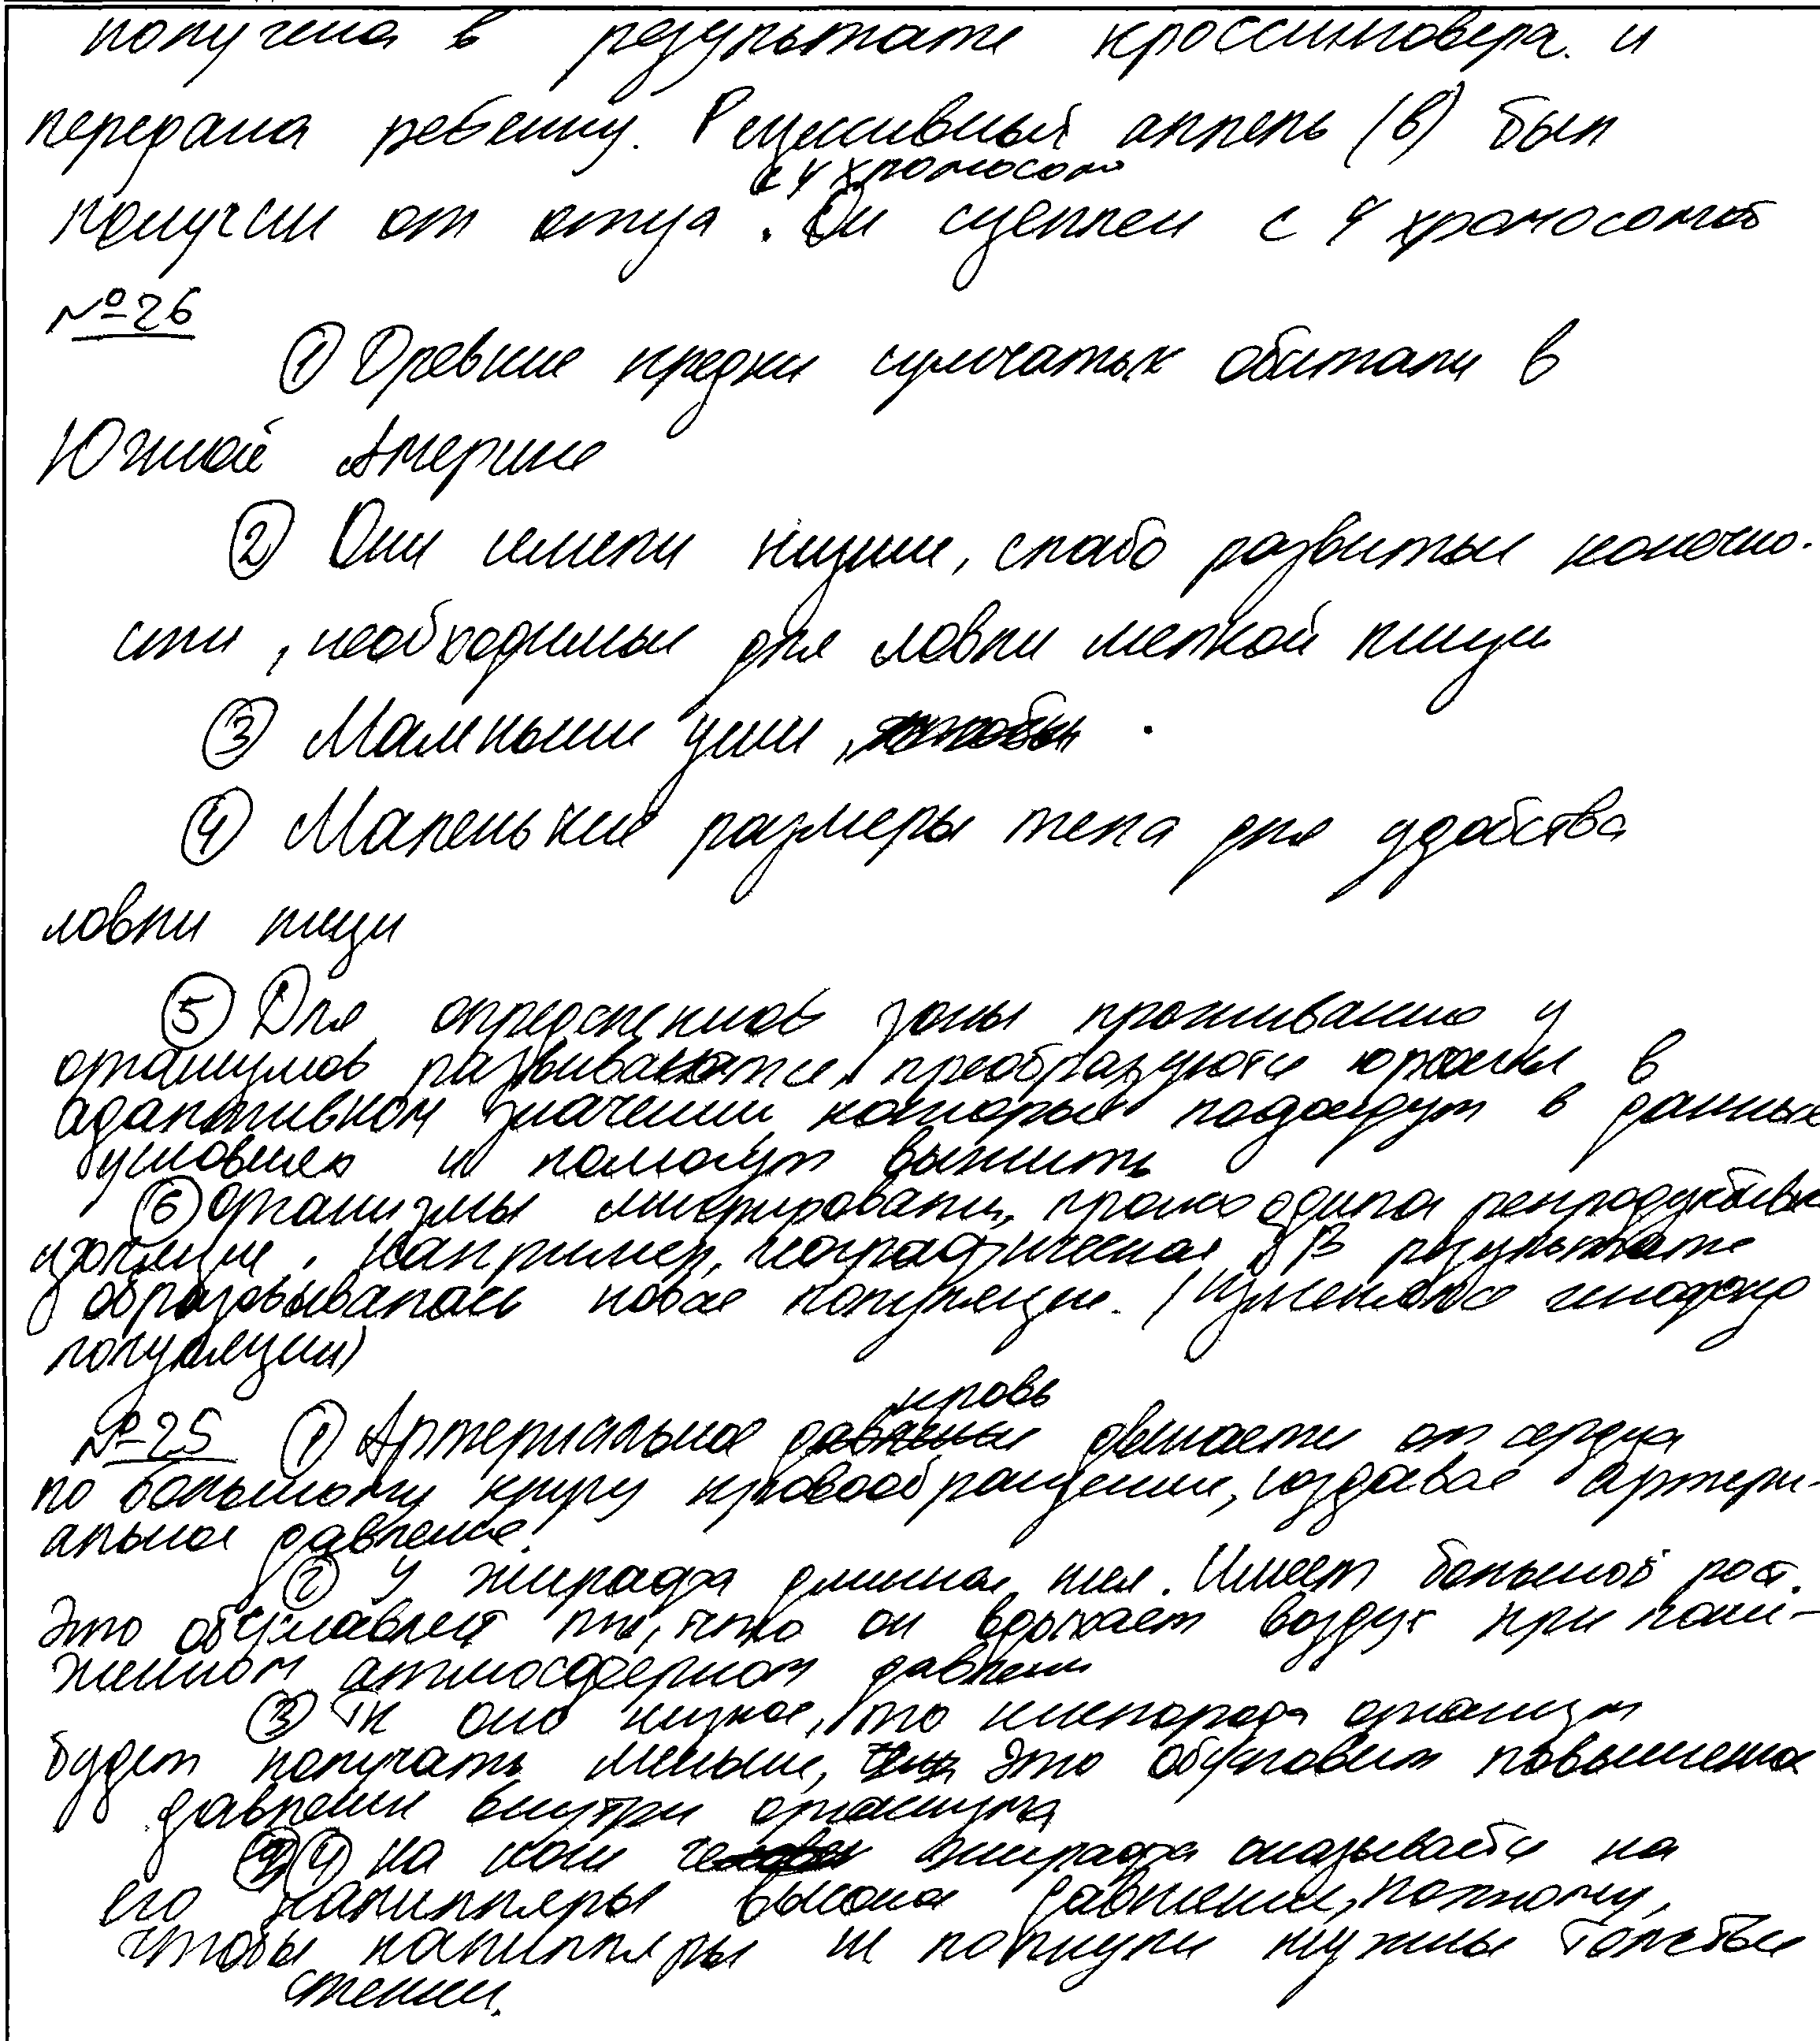 получена в результате кроссинговера. и
передана ребенку. Рецессивный аллель (в) был
получен от отца с Y хромосом. Он сцеплен с Y хромосомой
№26
① Древние предки сумчатых обитали в
Южной Америке
② Они имели низкие, слабо развитые конечно-
сти, необходимые для ловли мелкой пищи
③ Маленькие уши
④ Маленькие размеры тела для удобства
ловли пищи
⑤ Для определенной зоны проживания у
организмов развиваются, преобразуются органы в
адаптивном значении которые подойдут в данных
условиях и помогут выжить
⑥ Организмы мигрировали, происходила репродуктивная
изоляция. Например, географическая. В результате
образовывалась новая популяция. (Изменялся генофонд
популяции)
№25 ① Артериальная кровь движется от сердца
по большому кругу кровообращения, создавая артери-
альное давление.
② У жирафа длинная шея. Имеет большой рост.
Это обуславлев то, что он вдыхает воздух при пони-
женном атмосферном давлени
③ Тк оно низкое, то кислорода организм
будет получать меньше, это обусловит повышение
давления внутри организма
④ На кож жирафа оказывается на
его капилляры высока давление, поэтому,
чтобы капилляры не лопнули нужны толстые
стенки.